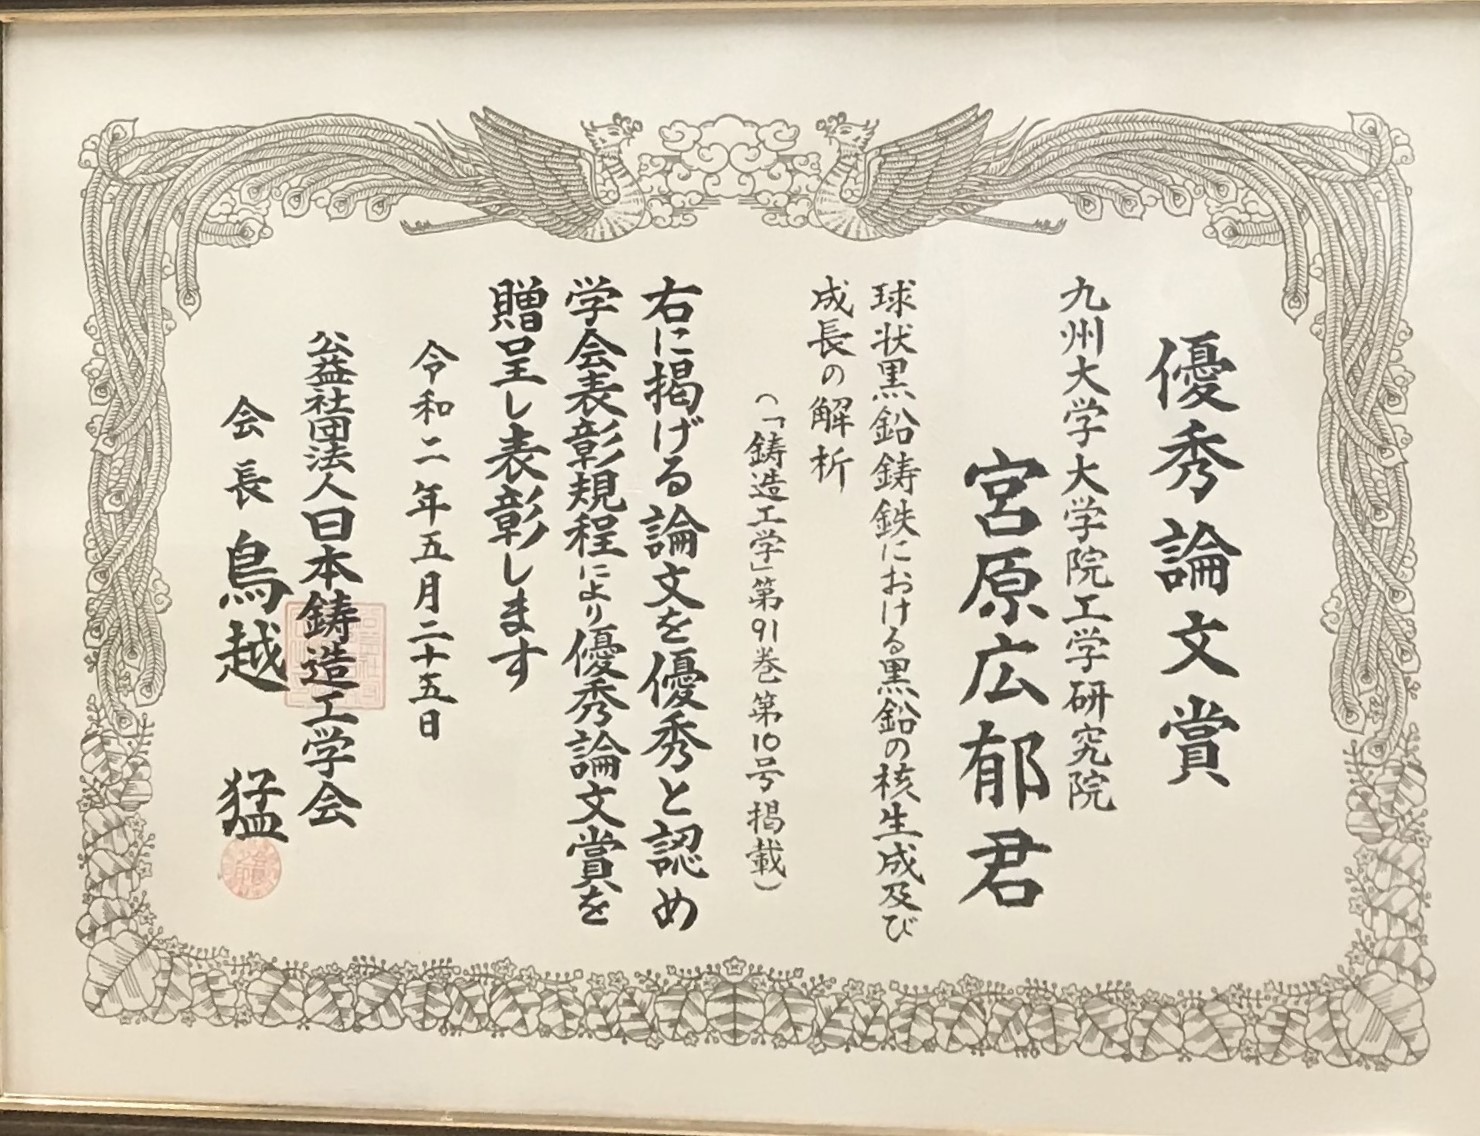 優秀論文賞
九州大学大学院工学研究院
宮原広郁君
球状黒鉛鋳鉄における黒鉛の核生成及び
成長の解析
(「鋳造工学」第91巻第10号掲載)
右に掲げる論文を優秀と認め
学会表彰規程により優秀論文賞を
贈呈し表彰します
令和二年五月二十五日
公益社団法人日本鋳造工学会
会長 鳥越 猛